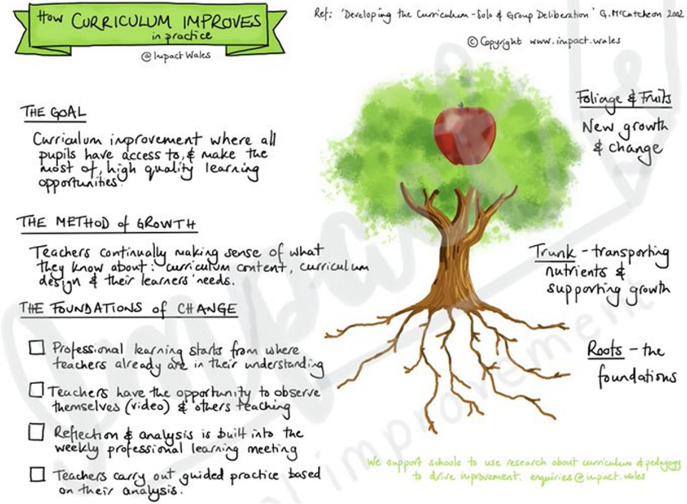 How CURRICULUM IMPROVES
in practice
@Impact Wales
Ref: 'Developing the Curriculum - Solo & Group Deliberation' G. McCutcheon 2002
© Copyright www.impact.wales
THE GOAL
Curriculum improvement where all
pupils have access to, & make the
most of, high quality learning
opportunities.
THE METHOD of GROWTH
Teachers continually making sense of what
they know about: curriculum content, curriculum
design & their learners' needs.
THE FOUNDATIONS of CHANGE
Professional learning starts from where
teachers already are in their understanding
Teachers have the opportunity to observe
themselves (video) & others teaching
Reflection & analysis is built into the
weekly professional learning meeting
Teachers carry out guided practice based
on their analysis.
Foliage & Fruits
New growth
& change
Trunk - transporting
nutrients &
supporting growth
Roots - the
foundations
We support schools to use research about curriculum & pedagogy
to drive improvement. enquiries@impact.wales